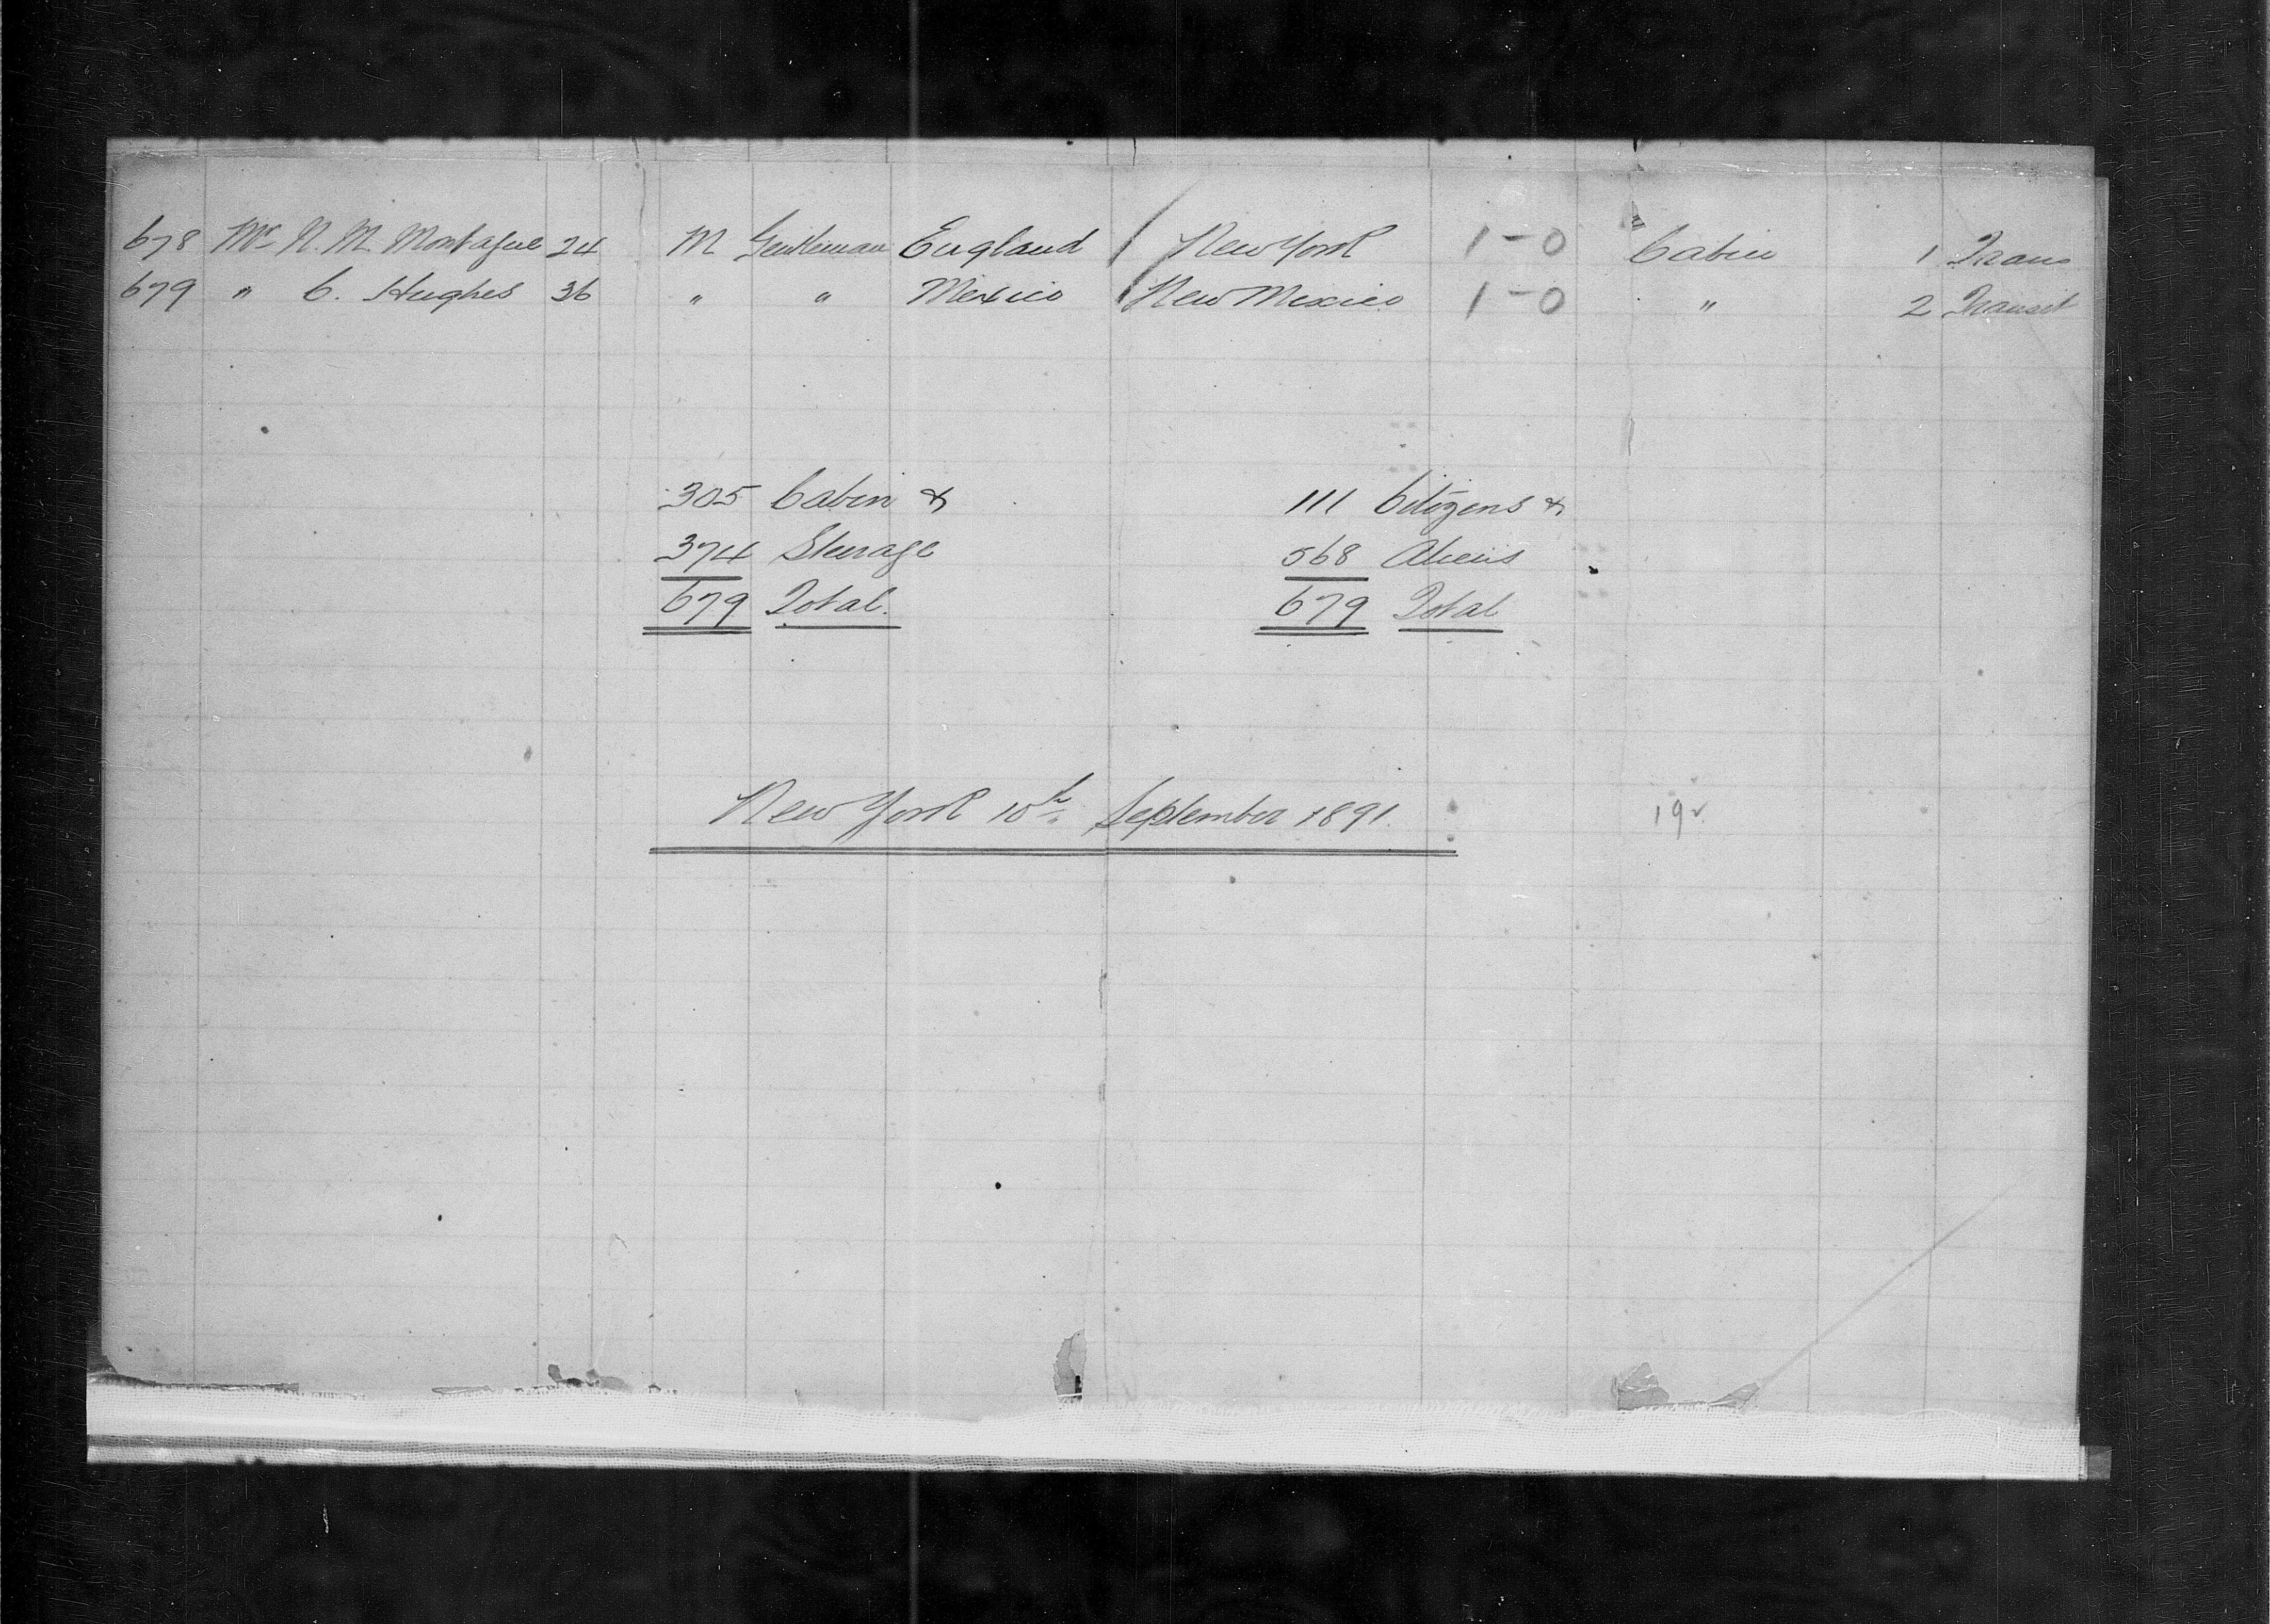 678 Mr N. M. Montague 24 M Gentleman England / New York 1-0 Cabin 1 Trans
679 " C. Hughes 36 " " Mexico / New Mexico 1-0 " 2 Transit
305 Cabin & 111 Citizens &
374 Steerage 568 Aliens
679 Total. 679 Total
New York 10th September 1891.